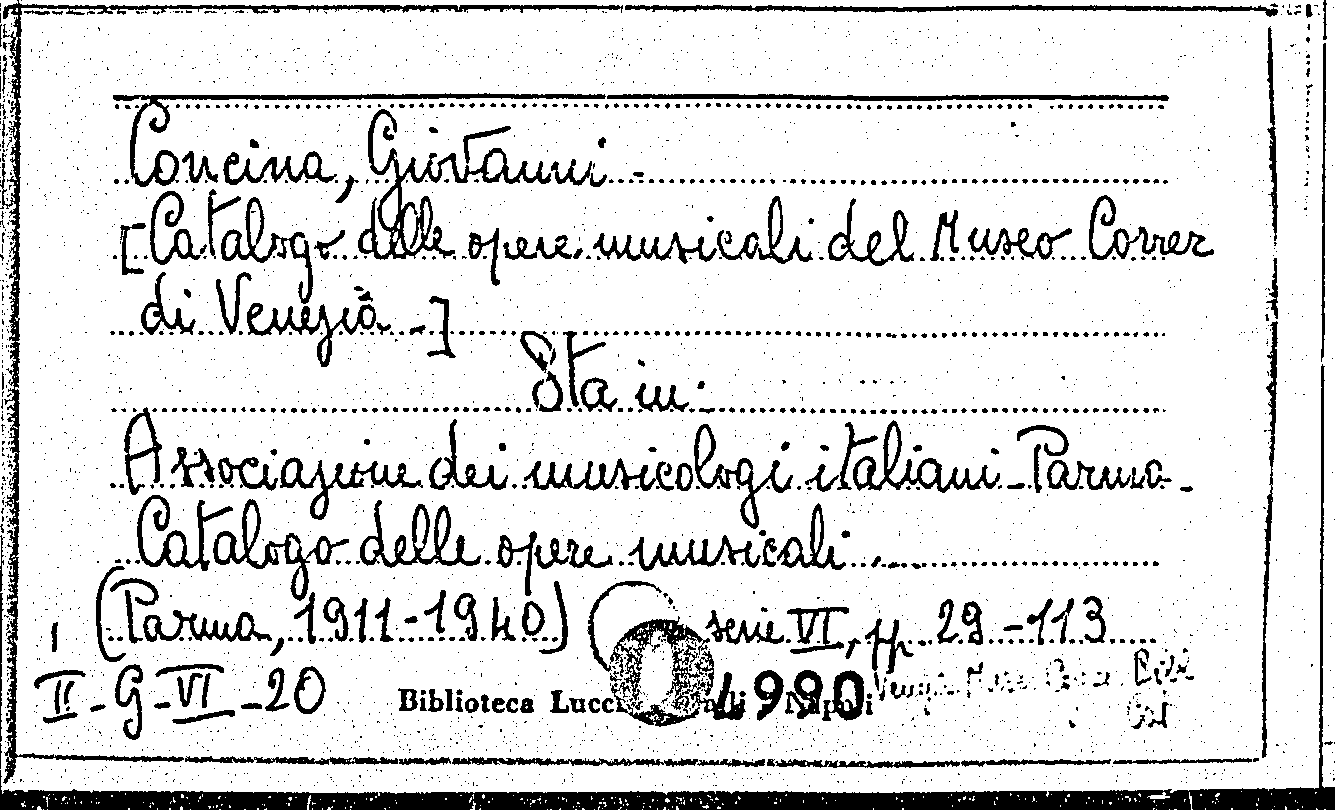 Concina, Giovanni -
[Catalogo delle opere musicali del Museo Correr
di Venezia -]
Sta in:
Associazione dei musicologi italiani - Parma -
Catalogo delle opere musicali...
(Parma, 1911-1940) serie VI, pp. 29-113
II-G-VI-20
Biblioteca Napoli
4990
Museo